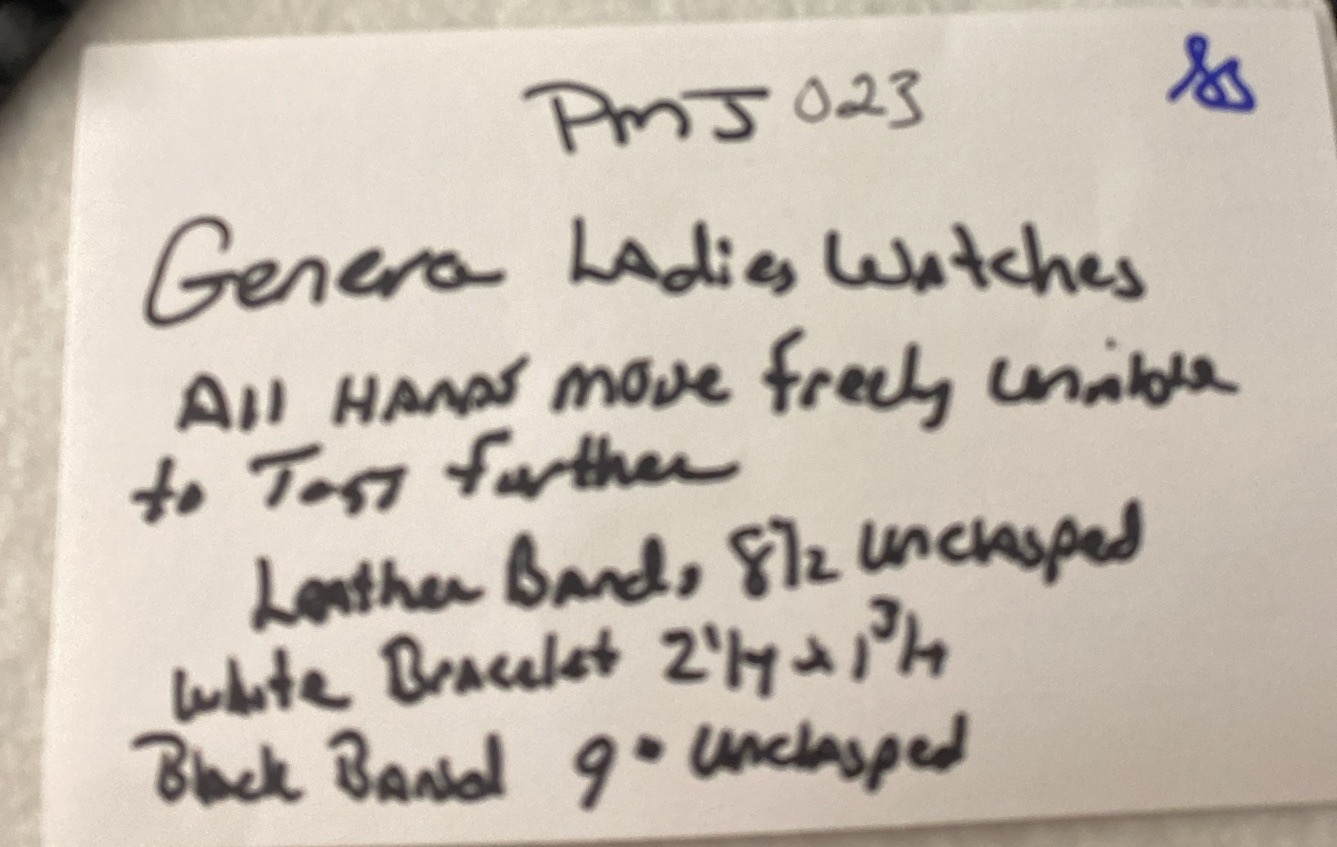 PMJ 023
Geneva Ladies Watches
All Hands move freely unable
to Test further
Leather Band, 8 1/2 unclasped
White Bracelet 2 1/4 x 1 3/4
Black Band 9" unclasped